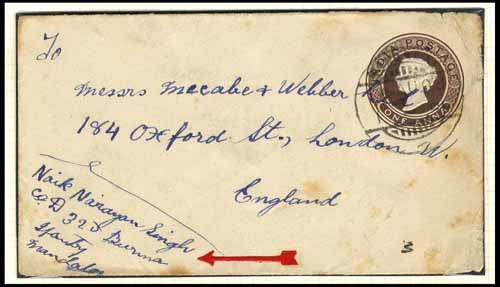 To
INDIA POSTAGE
ONE ANNA
Messrs Mccabe & Webber
184 Oxford St., London W.
England
Naik Narayan Singh
Co. D 32D Burma
Infantry
Mandalay
3